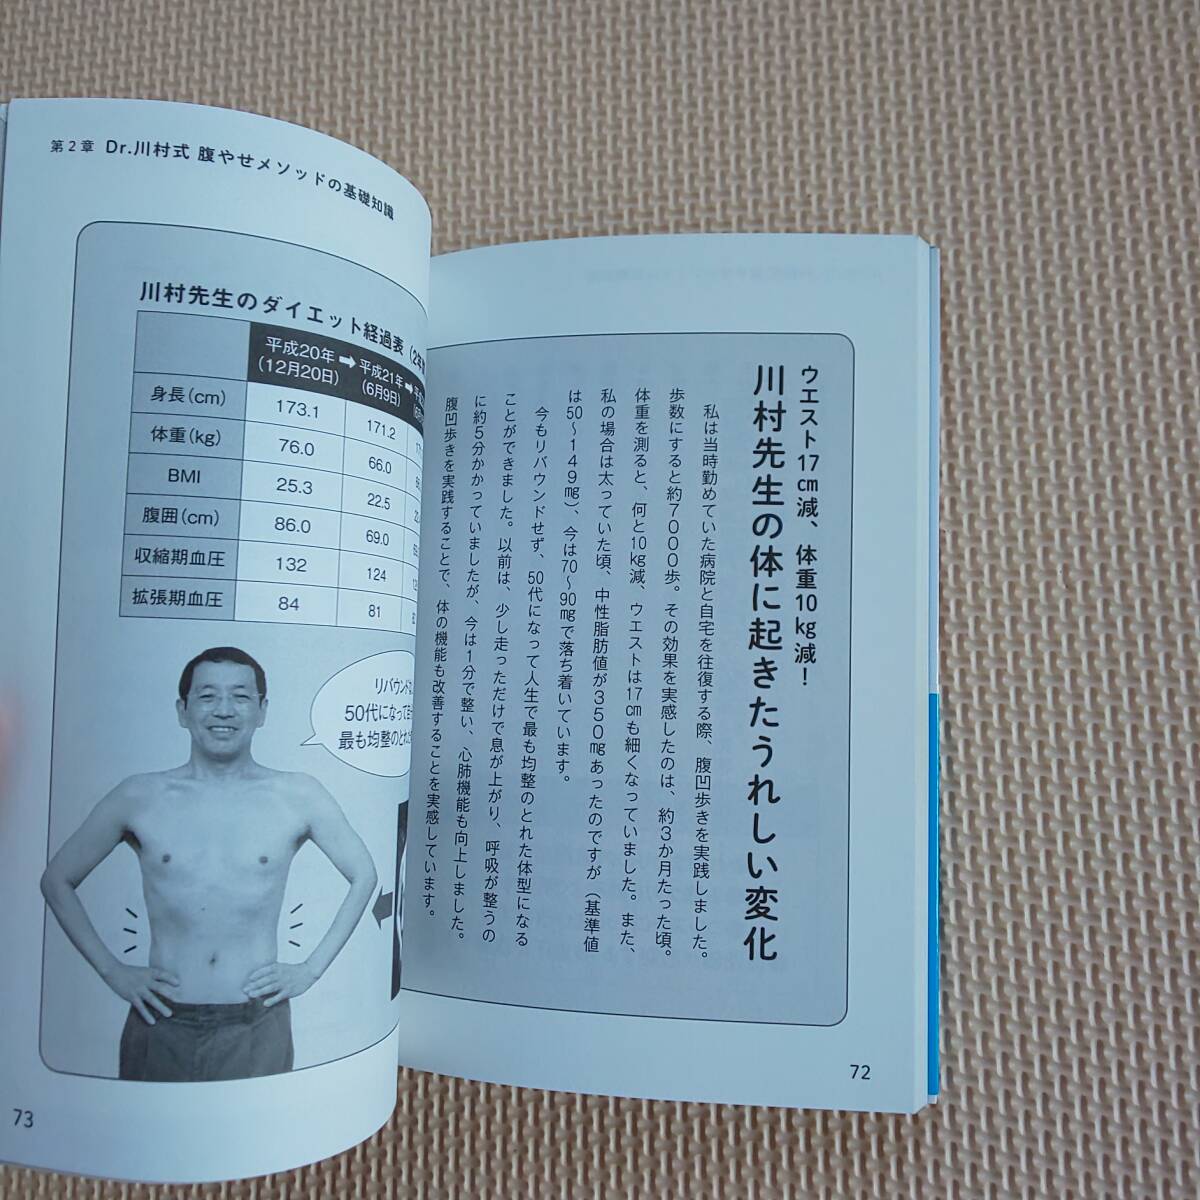 ウエスト17㎝減、体重10㎏減！
川村先生の体に起きたうれしい変化
私は当時勤めていた病院と自宅を往復する際、腹凹歩きを実践しました。
歩数にすると約7000歩。その効果を実感したのは、約3か月たった頃。
体重を測ると、何と10㎏減、ウエストは17㎝も細くなっていました。また、
私の場合は太っていた頃、中性脂肪値が350㎎あったのですが（基準値
は50～149㎎）、今は70～90㎎で落ち着いています。
今もリバウンドせず、50代になって人生で最も均整のとれた体型になる
ことができました。以前は、少し走っただけで息が上がり、呼吸が整うの
に約5分かかっていましたが、今は1分で整い、心肺機能も向上しました。
腹凹歩きを実践することで、体の機能も改善することを実感しています。
72
第2章 Dr.川村式 腹やせメソッドの基礎知識
川村先生のダイエット経過表
平成20年 ➡ 平成21年 ➡
(12月20日) (6月9日)
身長(cm) 173.1 171.2
体重(kg) 76.0 66.0
BMI 25.3 22.5
腹囲(cm) 86.0 69.0
収縮期血圧 132 124
拡張期血圧 84 81
リバウンド
50代になって
最も均整のとれ
73